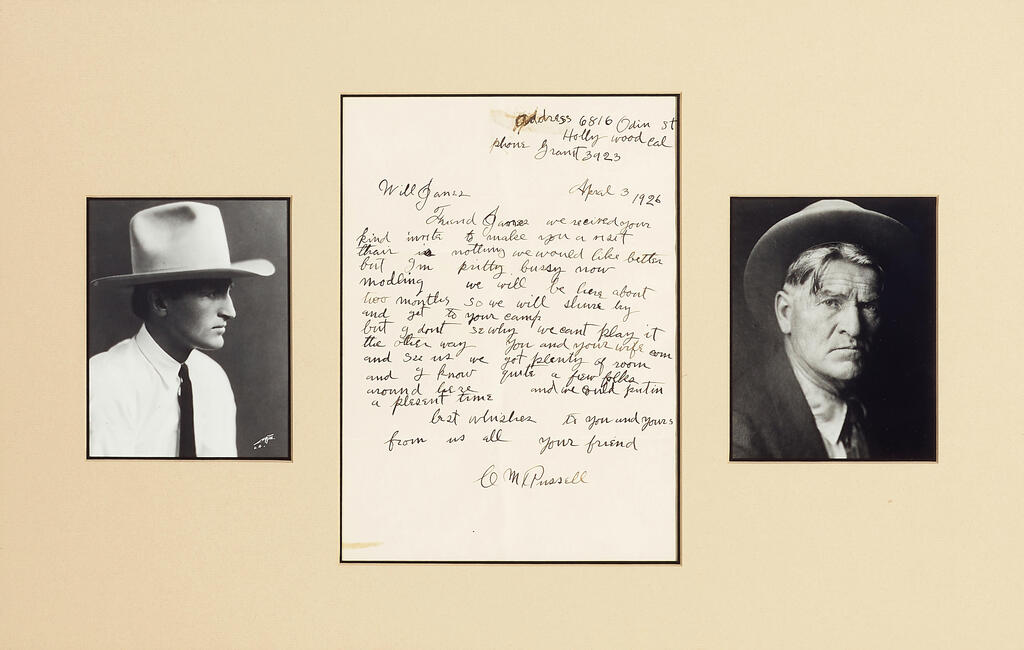 address 6816 Odin st
Hollywood Cal
phone Granit 3923
Will James
April 3 1926
Friend James we recived your
kind invite to make you a visit
thair is nothing we would like better
but I'm pritty bussy now
modling we will be here about
two months so we will shure try
and get to your camp
but I dont se why we cant play it
the other way You and your wife com
and see us we got plenty of room
and I know quite a few folks
around here and we could put in
a plesent time
best whishes to you and yours
from us all your friend
C M Russell